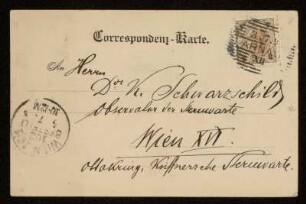 Correspondenz-Karte.
An Herrn
Dr K. Schwarzschild
Observator der Sternwarte
Wien XVI.
Ottakring, Kuffnersche Sternwarte.